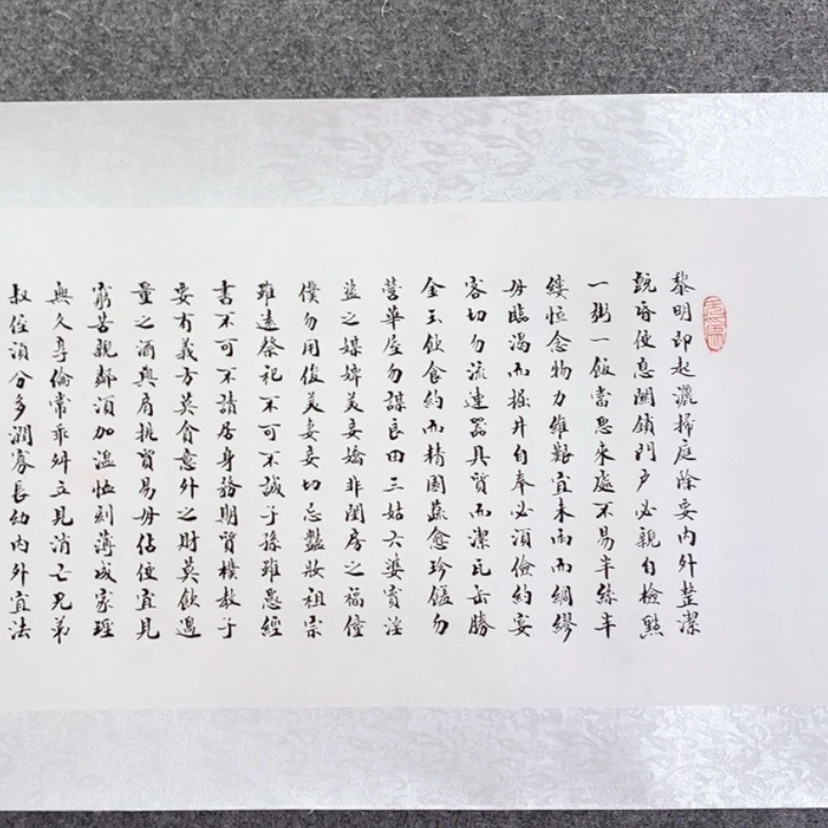 黎明即起灑掃庭除要内外整潔
既昏便息關鎖門戶必親自檢點
一粥一飯當思來處不易半絲半
縷恒念物力維艱宜未雨而綢繆
毋臨渴而掘井自奉必須儉約宴
客切勿流連器具質而潔瓦缶勝
金玉飲食約而精園蔬愈珍饈勿
營華屋勿謀良田三姑六婆實淫
盜之媒婢美妾嬌非閨房之福僮
僕勿用俊美妻妾切忌豔妝祖宗
雖遠祭祀不可不誠子孫雖愚經
書不可不讀居身務期質樸教子
要有義方莫貪意外之財莫飲過
量之酒與肩挑貿易毋佔便宜見
窮苦親鄰須加溫恤刻薄成家理
無久享倫常乖舛立見消亡兄弟
叔侄須分多潤寡長幼内外宜法